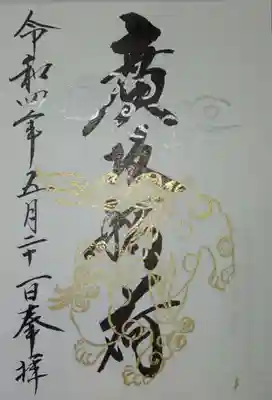 廣坂稲荷
令和四年五月二十一日奉拝